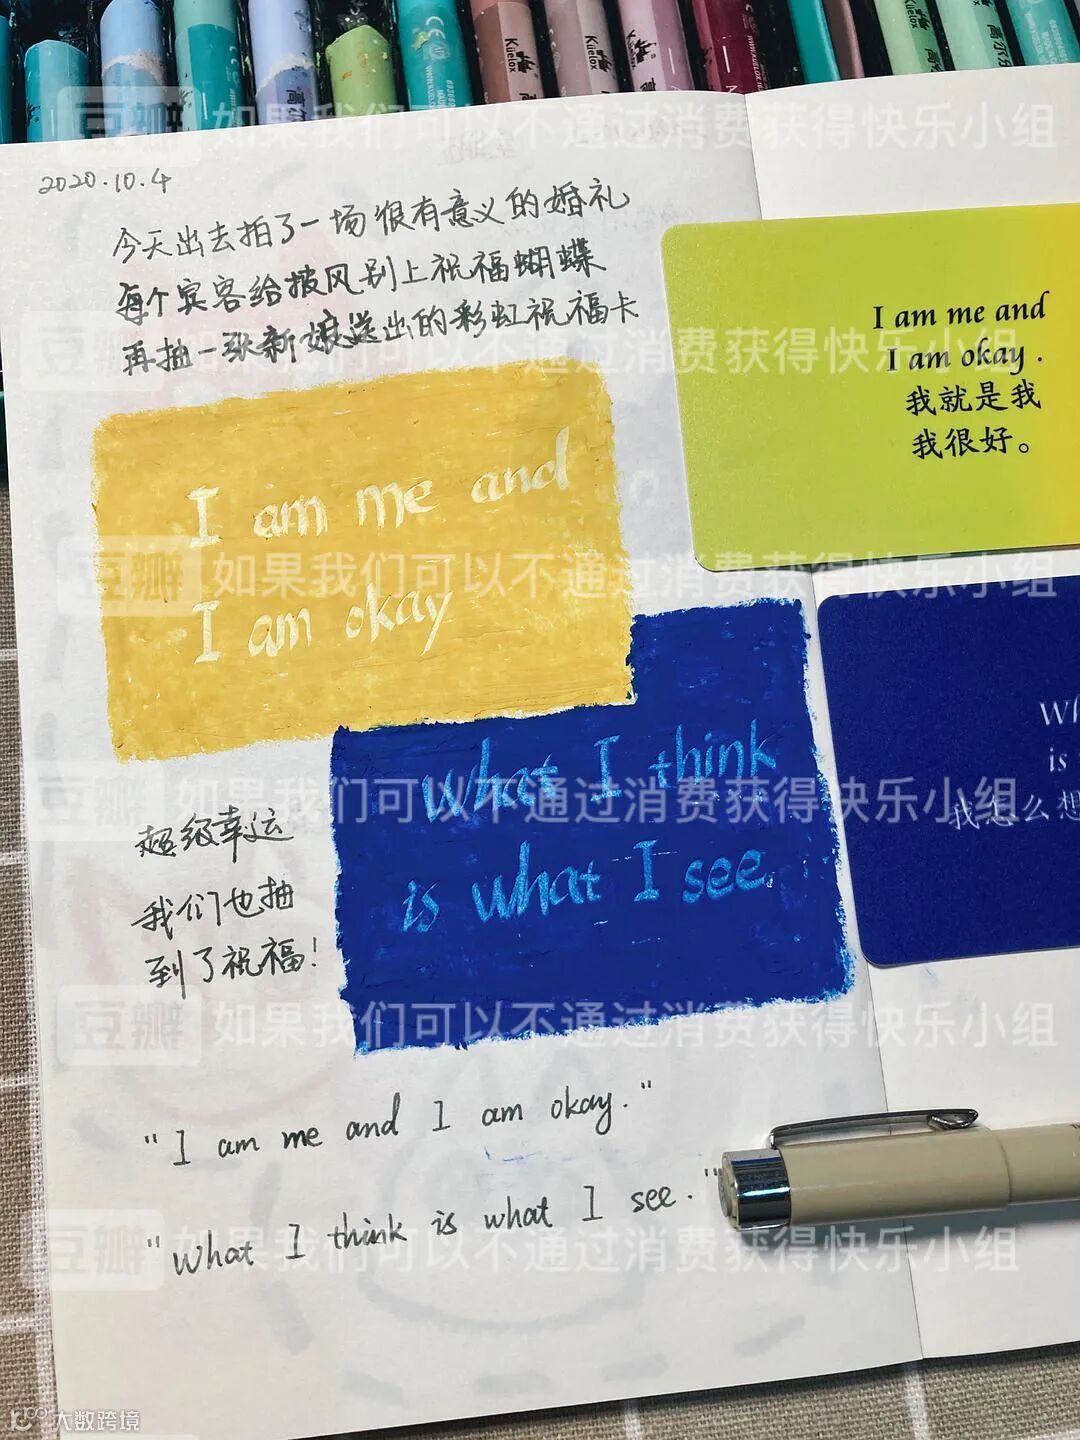 2020.10.4
今天出去拍了一场很有意义的婚礼
每个宾客给披风别上祝福蝴蝶
再抽一张新娘送出的彩虹祝福卡
I am me and
I am okay
I am me and
I am okay .
我就是我
我很好。
What I think
is what I see.
Wh
is
我怎么想
超级幸运
我们也抽
到了祝福!
"I am me and I am okay."
"What I think is what I see."
Kuelox
高尔
Kuelox
Kuelox
豆瓣 如果我们可以不通过消费获得快乐小组
豆瓣 如果我们可以不通过消费获得快乐小组
豆瓣 如果我们可以不通过消费获得快乐小组
豆瓣 如果我们可以不通过消费获得快乐小组
豆瓣 如果我们可以不通过消费获得快乐小组
豆瓣 如果我们可以不通过消费获得快乐小组
大数跨境